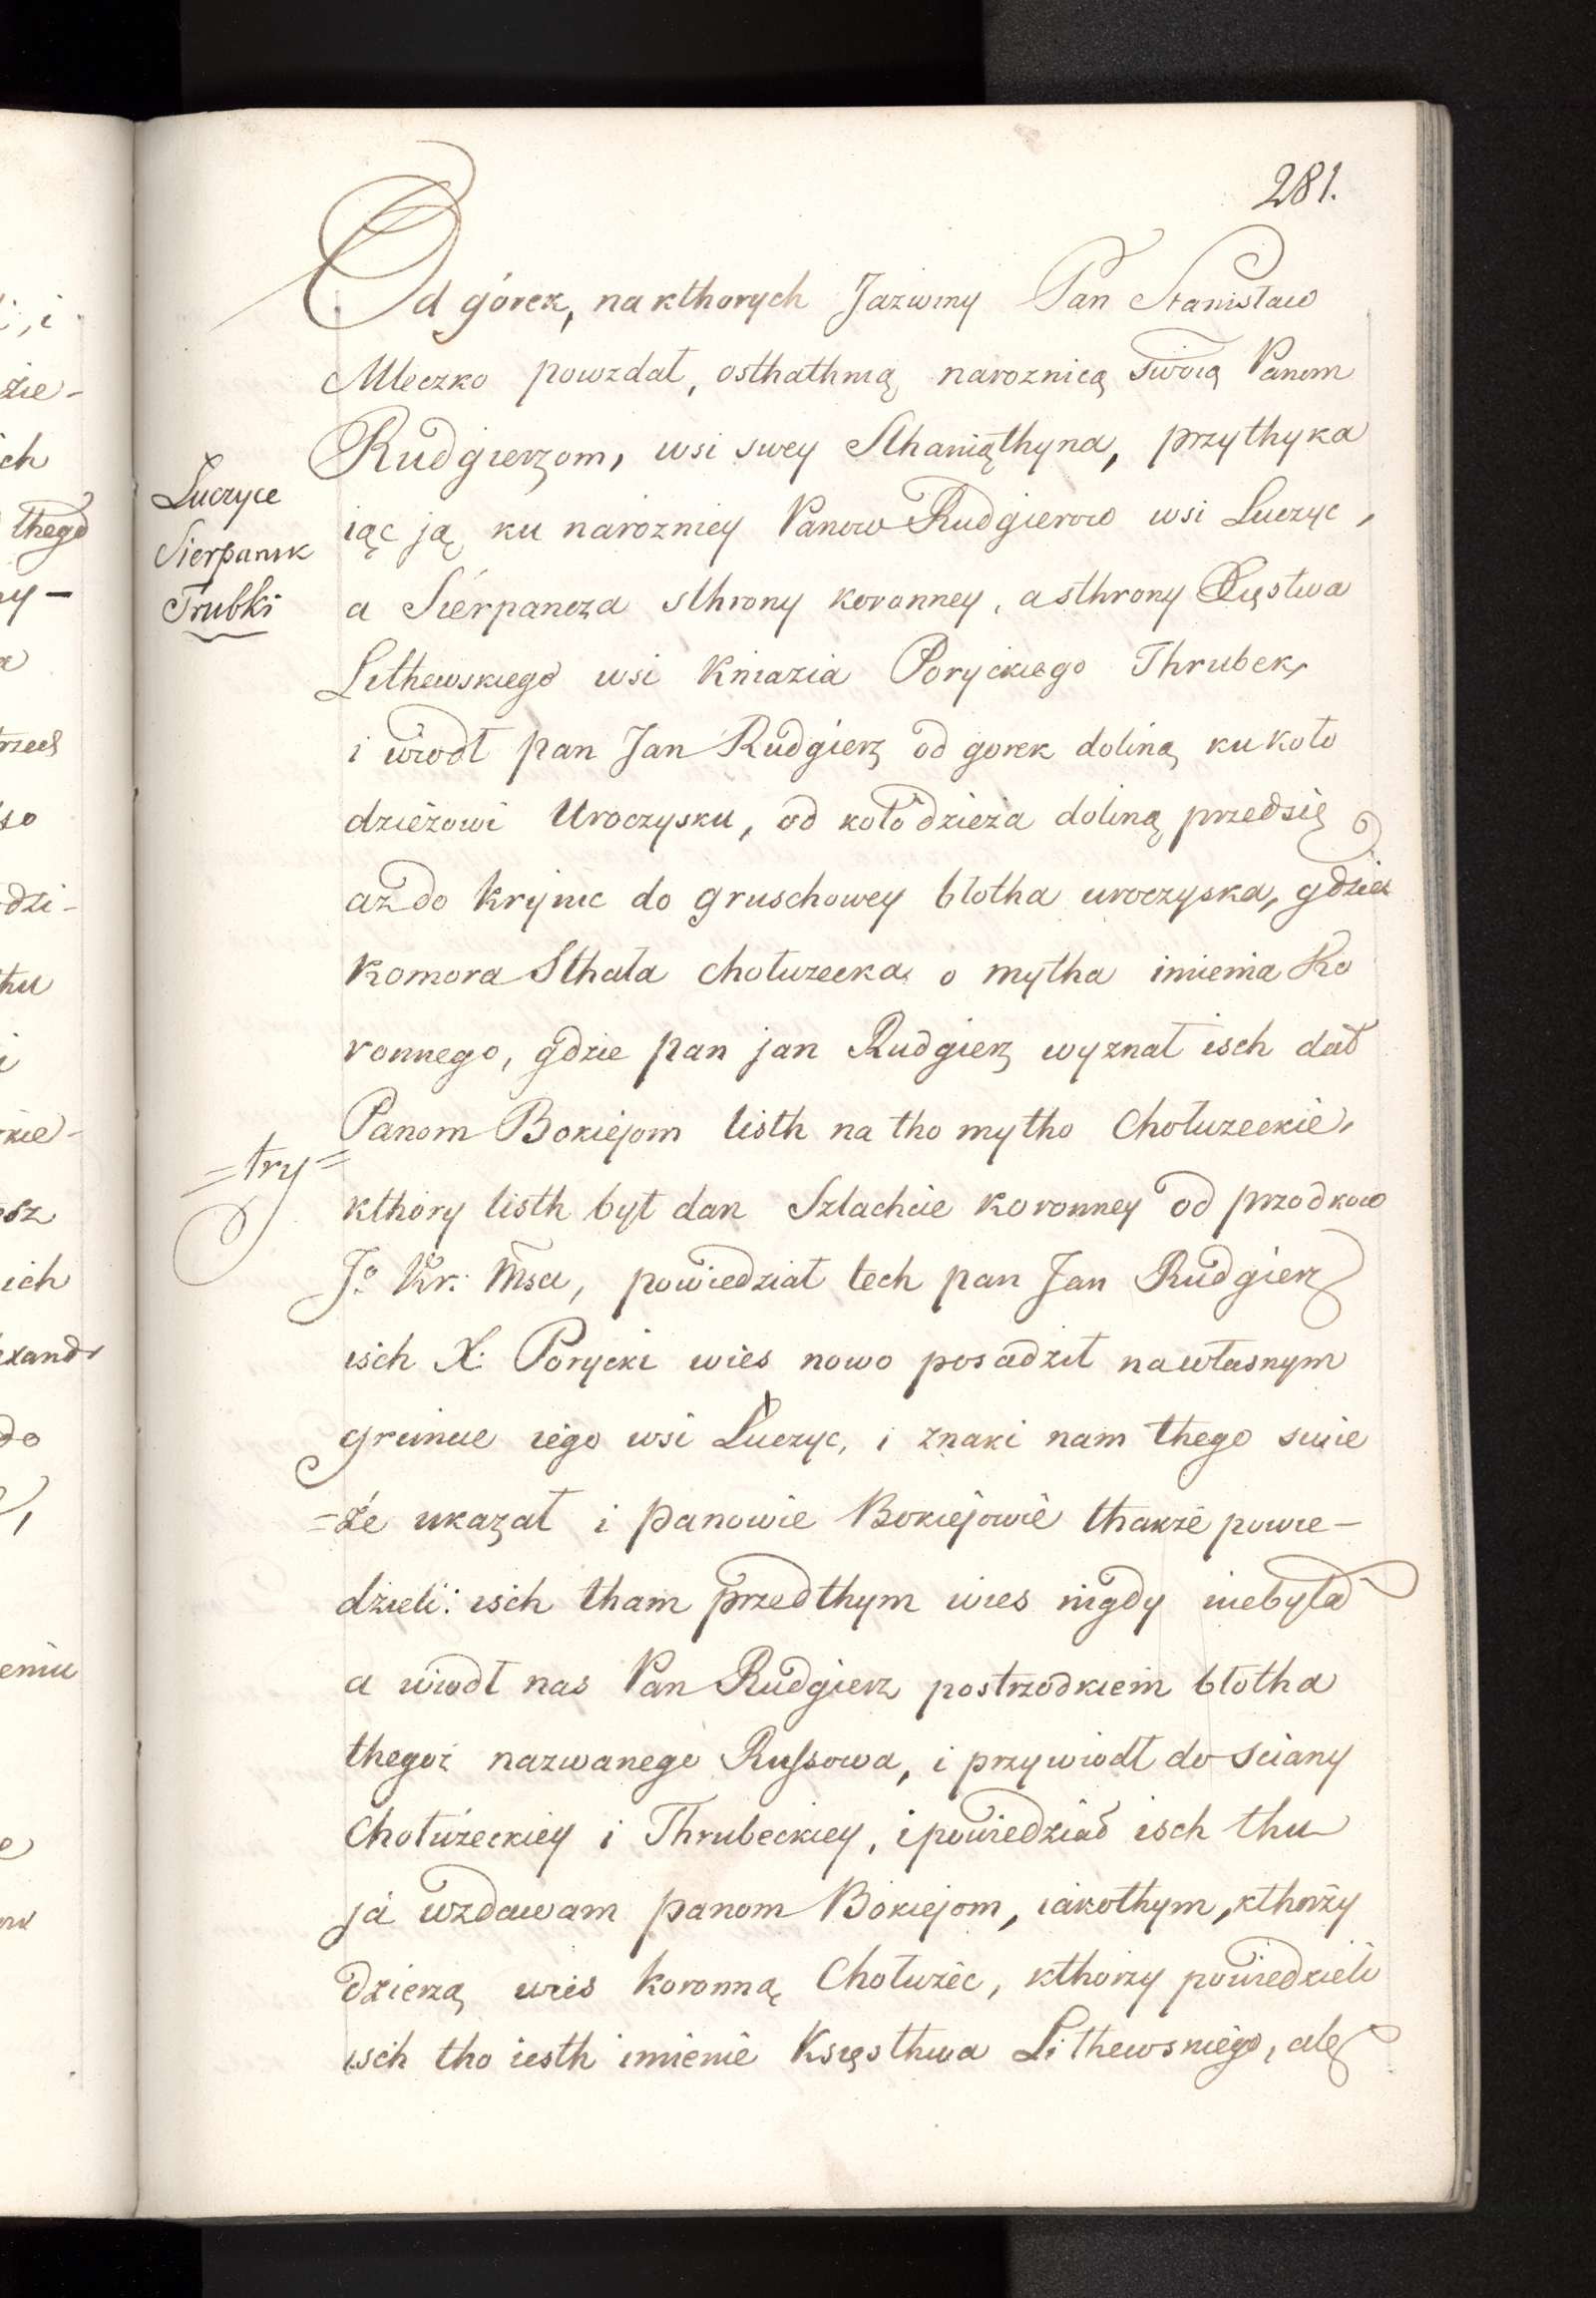 281.
Od górek, na kthorych Jazwiny Pan Stanisław
Mleczko powzdał, osthathnią naroznicą swoią Panom
Rudgierzom, wsi swey Sthaniąthyna, przythyka
iąc ją ku naroznicy Panow Rudgierow wsi Luczyc,
a Sierpancza sthrony koronney, a sthrony Xięstwa
Lithewskiego wsi Kniazia Poryckiego Thrubek,
i wiodł pan Jan Rudgierz od gorek doliną ku koło
dzieżowi Uroczysku, od kołodzieża doliną przedsię
aż do Krynic do gruschowey błotha uroczyska, gdzie
Komora Sthała chołuzecka o mytha imienia Ko
ronnego, gdzie pan jan Rudgierz wyznał isch dał
Panom Bokiejom listh na tho mytho Chołuzeckie,
kthory listh był dan Szlachcie koronney od przodkow
Jº Kr: Msci, powiedział tech pan Jan Rudgierz
isch X: Porycki wies nowo posadził na własnym
gruncie iego wsi Luczyc, i znaki nam thego swie
=że ukazał i panowie Bokiejowie thakże powie-
dzieli: isch tham przed thym wies nigdy niebyła
a wiodł nas Pan Rudgierz postrzodkiem błotha
thegoż nazwanego Russowa, i przywiodł do sciany
Chołużeckiey i Thrubeckiey, i powiedział isch thu
já wzdawam panom Bokiejom, iako thym, kthorży
dzierzą wies koronną Chołużec, kthorzy powiedzieli
isch tho iesth imienie Księsthwa Lithewskiego, ale
Luczyce
Sierpanik
Trubki
=try=